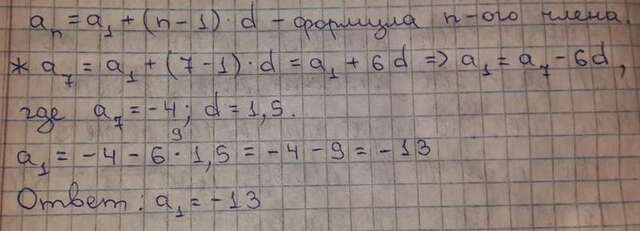 aₙ = a₁ + (n-1)·d - формула n-ого члена.
* a₇ = a₁ + (7-1)·d = a₁ + 6d => a₁ = a₇ - 6d,
где a₇ = -4; d = 1,5.
9
a₁ = -4 - 6·1,5 = -4 - 9 = -13
Ответ: a₁ = -13